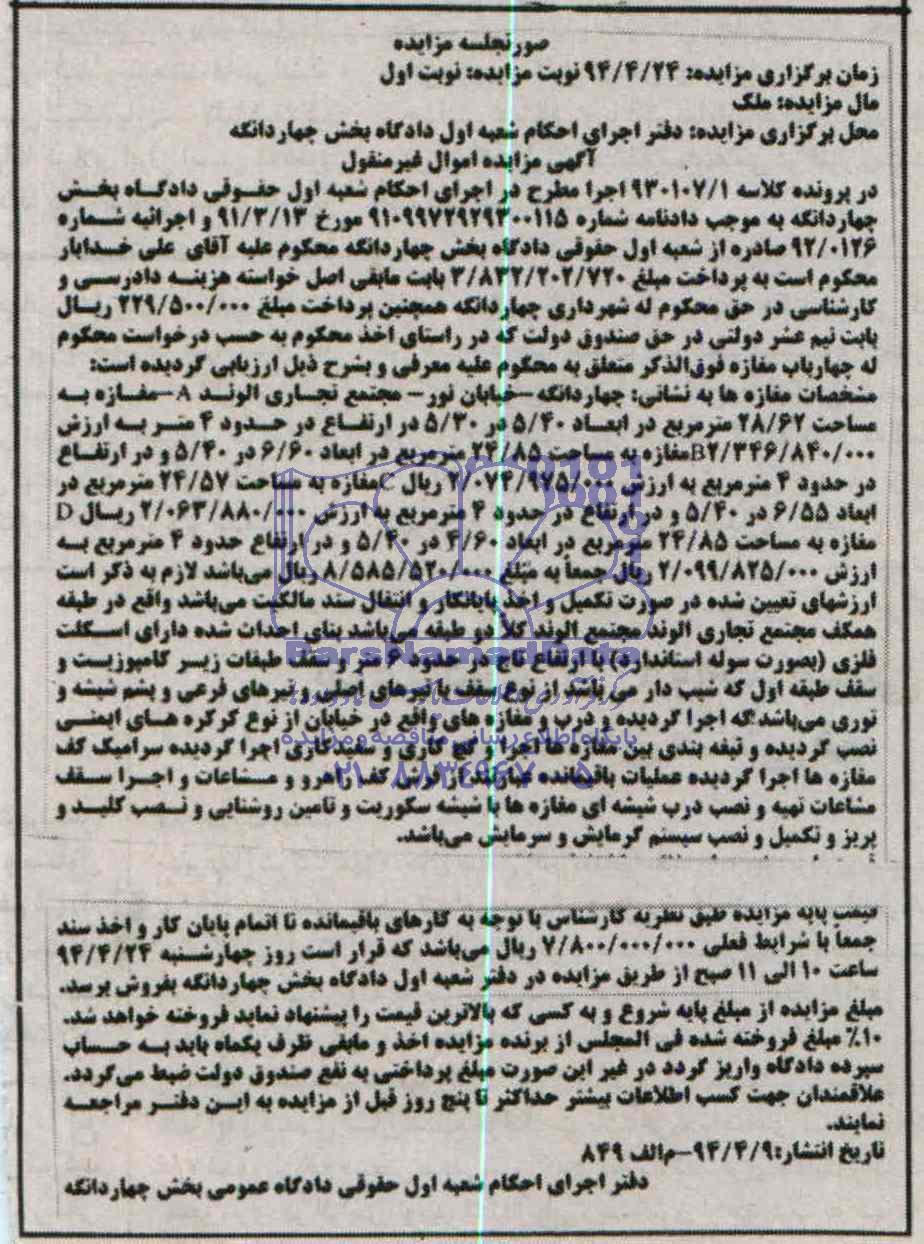 صورتجلسه مزایده
زمان برگزاری مزایده: ۹۴/۴/۲۴ نوبت مزایده: نوبت اول
مال مزایده: ملک
محل برگزاری مزایده: دفتر اجرای احکام شعبه اول دادگاه بخش چهاردانگه
آگهی مزایده اموال غیرمنقول
در پرونده کلاسه ۹۳۰۱۰۷/۱ اجرا مطرح در اجرای احکام شعبه اول حقوقی دادگاه بخش
چهاردانگه به موجب دادنامه شماره ۹۱۰۹۹۷۲۹۲۹۳۰۰۱۱۵ مورخ ۹۱/۳/۱۳ و اجرائیه شماره
۹۲/۰۱۲۶ صادره از شعبه اول حقوقی دادگاه بخش چهاردانگه محکوم علیه آقای علی خدایار
محکوم است به پرداخت مبلغ ۳/۸۳۲/۲۰۲/۷۲۰ بابت مابقی اصل خواسته هزینه دادرسی و
کارشناسی در حق محکوم له شهرداری چهاردانگه همچنین پرداخت مبلغ ۲۲۹/۵۰۰/۰۰۰ ریال
بابت نیم عشر دولتی در حق صندوق دولت که در راستای اخذ محکوم به حسب درخواست محکوم
له چهارباب مغازه فوق‌الذکر متعلق به محکوم علیه معرفی و بشرح ذیل ارزیابی گردیده است:
مشخصات مغازه ها به نشانی: چهاردانگه-خیابان نور- مجتمع تجاری الوند A-مغازه به
مساحت ۲۸/۶۲ مترمربع در ابعاد ۵/۴۰ در ۵/۳۰ در ارتفاع در حدود ۴ متر به ارزش
B۲/۳۴۶/۸۴۰/۰۰۰مغازه به مساحت ۲۴/۸۵ مترمربع در ابعاد ۶/۶۰ در ۵/۴۰ و در ارتفاع
در حدود ۴ مترمربع به ارزش ۲/۰۷۴/۹۷۵/۰۰۰ ریال Cمغازه به مساحت ۲۴/۵۷ مترمربع در
ابعاد ۶/۵۵ در ۵/۴۰ و در ارتفاع در حدود ۴ مترمربع به ارزش ۲/۰۶۳/۸۸۰/۰۰۰ ریال D
مغازه به مساحت ۲۴/۸۵ مترمربع در ابعاد ۴/۶۰ در ۵/۴۰ و در ارتفاع حدود ۴ مترمربع به
ارزش ۲/۰۹۹/۸۲۵/۰۰۰ ریال جمعاً به مبلغ ۸/۵۸۵/۵۲۰/۰۰۰ ریال می‌باشد لازم به ذکر است
ارزشهای تعیین شده در صورت تکمیل و اخذ پایانکار و انتقال سند مالکیت می‌باشد واقع در طبقه
همکف مجتمع تجاری الوند مجتمع الوند کلا دو طبقه می‌باشد بنای احداث شده دارای اسکلت
فلزی (بصورت سوله استاندارد) با ارتفاع تاج در حدود ۶ متر و سقف طبقات زیر کامپوزیت و
سقف طبقه اول که شیب دار می باشد از نوع سقف با تیرهای اصلی و تیرهای فرعی و پشم شیشه و
توری می‌باشد که اجرا گردیده و درب و مغازه های واقع در خیابان از نوع کرکره های ایمنی
نصب گردیده و تیغه بندی بین مغازه ها اجرا و گچ کاری و سفیدکاری اجرا گردیده سرامیک کف
مغازه ها اجرا گردیده عملیات باقیمانده عبارتند از فرش کف راهرو و مشاعات و اجرا سقف
مشاعات تهیه و نصب درب شیشه ای مغازه ها با شیشه سکوریت و تامین روشنایی و نصب کلید و
پریز و تکمیل و نصب سیستم گرمایش و سرمایش می‌باشد.
قیمت پایه مزایده طبق نظریه کارشناس با توجه به کارهای باقیمانده تا اتمام پایان کار و اخذ سند
جمعاً با شرایط فعلی ۷/۸۰۰/۰۰۰/۰۰۰ ریال می‌باشد که قرار است روز چهارشنبه ۹۴/۴/۲۴
ساعت ۱۰ الی ۱۱ صبح از طریق مزایده در دفتر شعبه اول دادگاه بخش چهاردانگه بفروش برسد.
مبلغ مزایده از مبلغ پایه شروع و به کسی که بالاترین قیمت را پیشنهاد نماید فروخته خواهد شد.
۱۰٪ مبلغ فروخته شده فی المجلس از برنده مزایده اخذ و مابقی ظرف یکماه باید به حساب
سپرده دادگاه واریز گردد در غیر این صورت مبلغ پرداختی به نفع صندوق دولت ضبط می‌گردد.
علاقمندان جهت کسب اطلاعات بیشتر حداکثر تا پنج روز قبل از مزایده به این دفتر مراجعه
نمایند.
تاریخ انتشار:۹۴/۴/۹-م‌الف ۸۴۹
دفتر اجرای احکام شعبه اول حقوقی دادگاه عمومی بخش چهاردانگه
ParsNamadData
پایگاه اطلاع رسانی مناقصه و مزایده